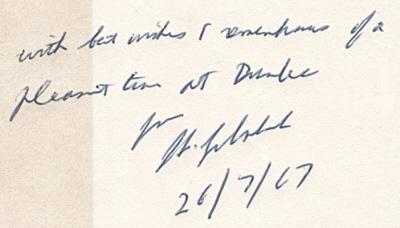 with best wishes & remembrances of a
pleasant time at Dundee
26/7/67